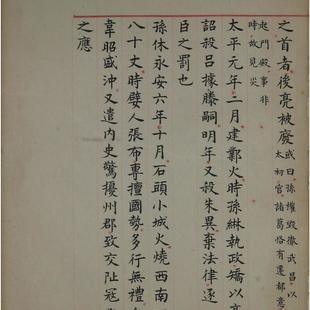 之首者後亮被廢
或曰孫權毀徹武昌以
太初宮諸葛恪有遷都意
起門殿事非
時故見災
太平元年二月建鄴火時孫綝執政矯以
詔殺呂據滕嗣明年又殺朱異棄法律逐
臣之罰也
孫休永安六年十月石頭小城火燒西南
八十丈時嬖人張布專擅國勢多行無禮
韋昭盛沖又遣内史驚擾州郡致交阯寇
之應